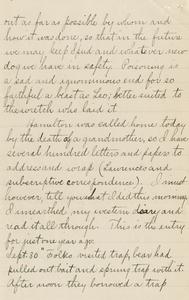 out as far as possible by whom and
how it was done, so that in the future
we may keep Sud and whatever new
dog we have in safety. Poisoning is
a sad and ignominious end for so
faithful a beast as Leo; better suited to
the wretch who laid it.
Hamilton was called home today
by the death of a grandmother, so I have
several hundred letters and papers to
address and wrap (Lawrences and
subscriptive correspondence). I must
however, tell you what I did the morning
I unearthed my western diary and
read it all through. This is the entry
for just one year ago:
Sept. 30 "Folks visited trap, bear had
pulled out bait and sprung trap with it.
After noon they borrowed a trap